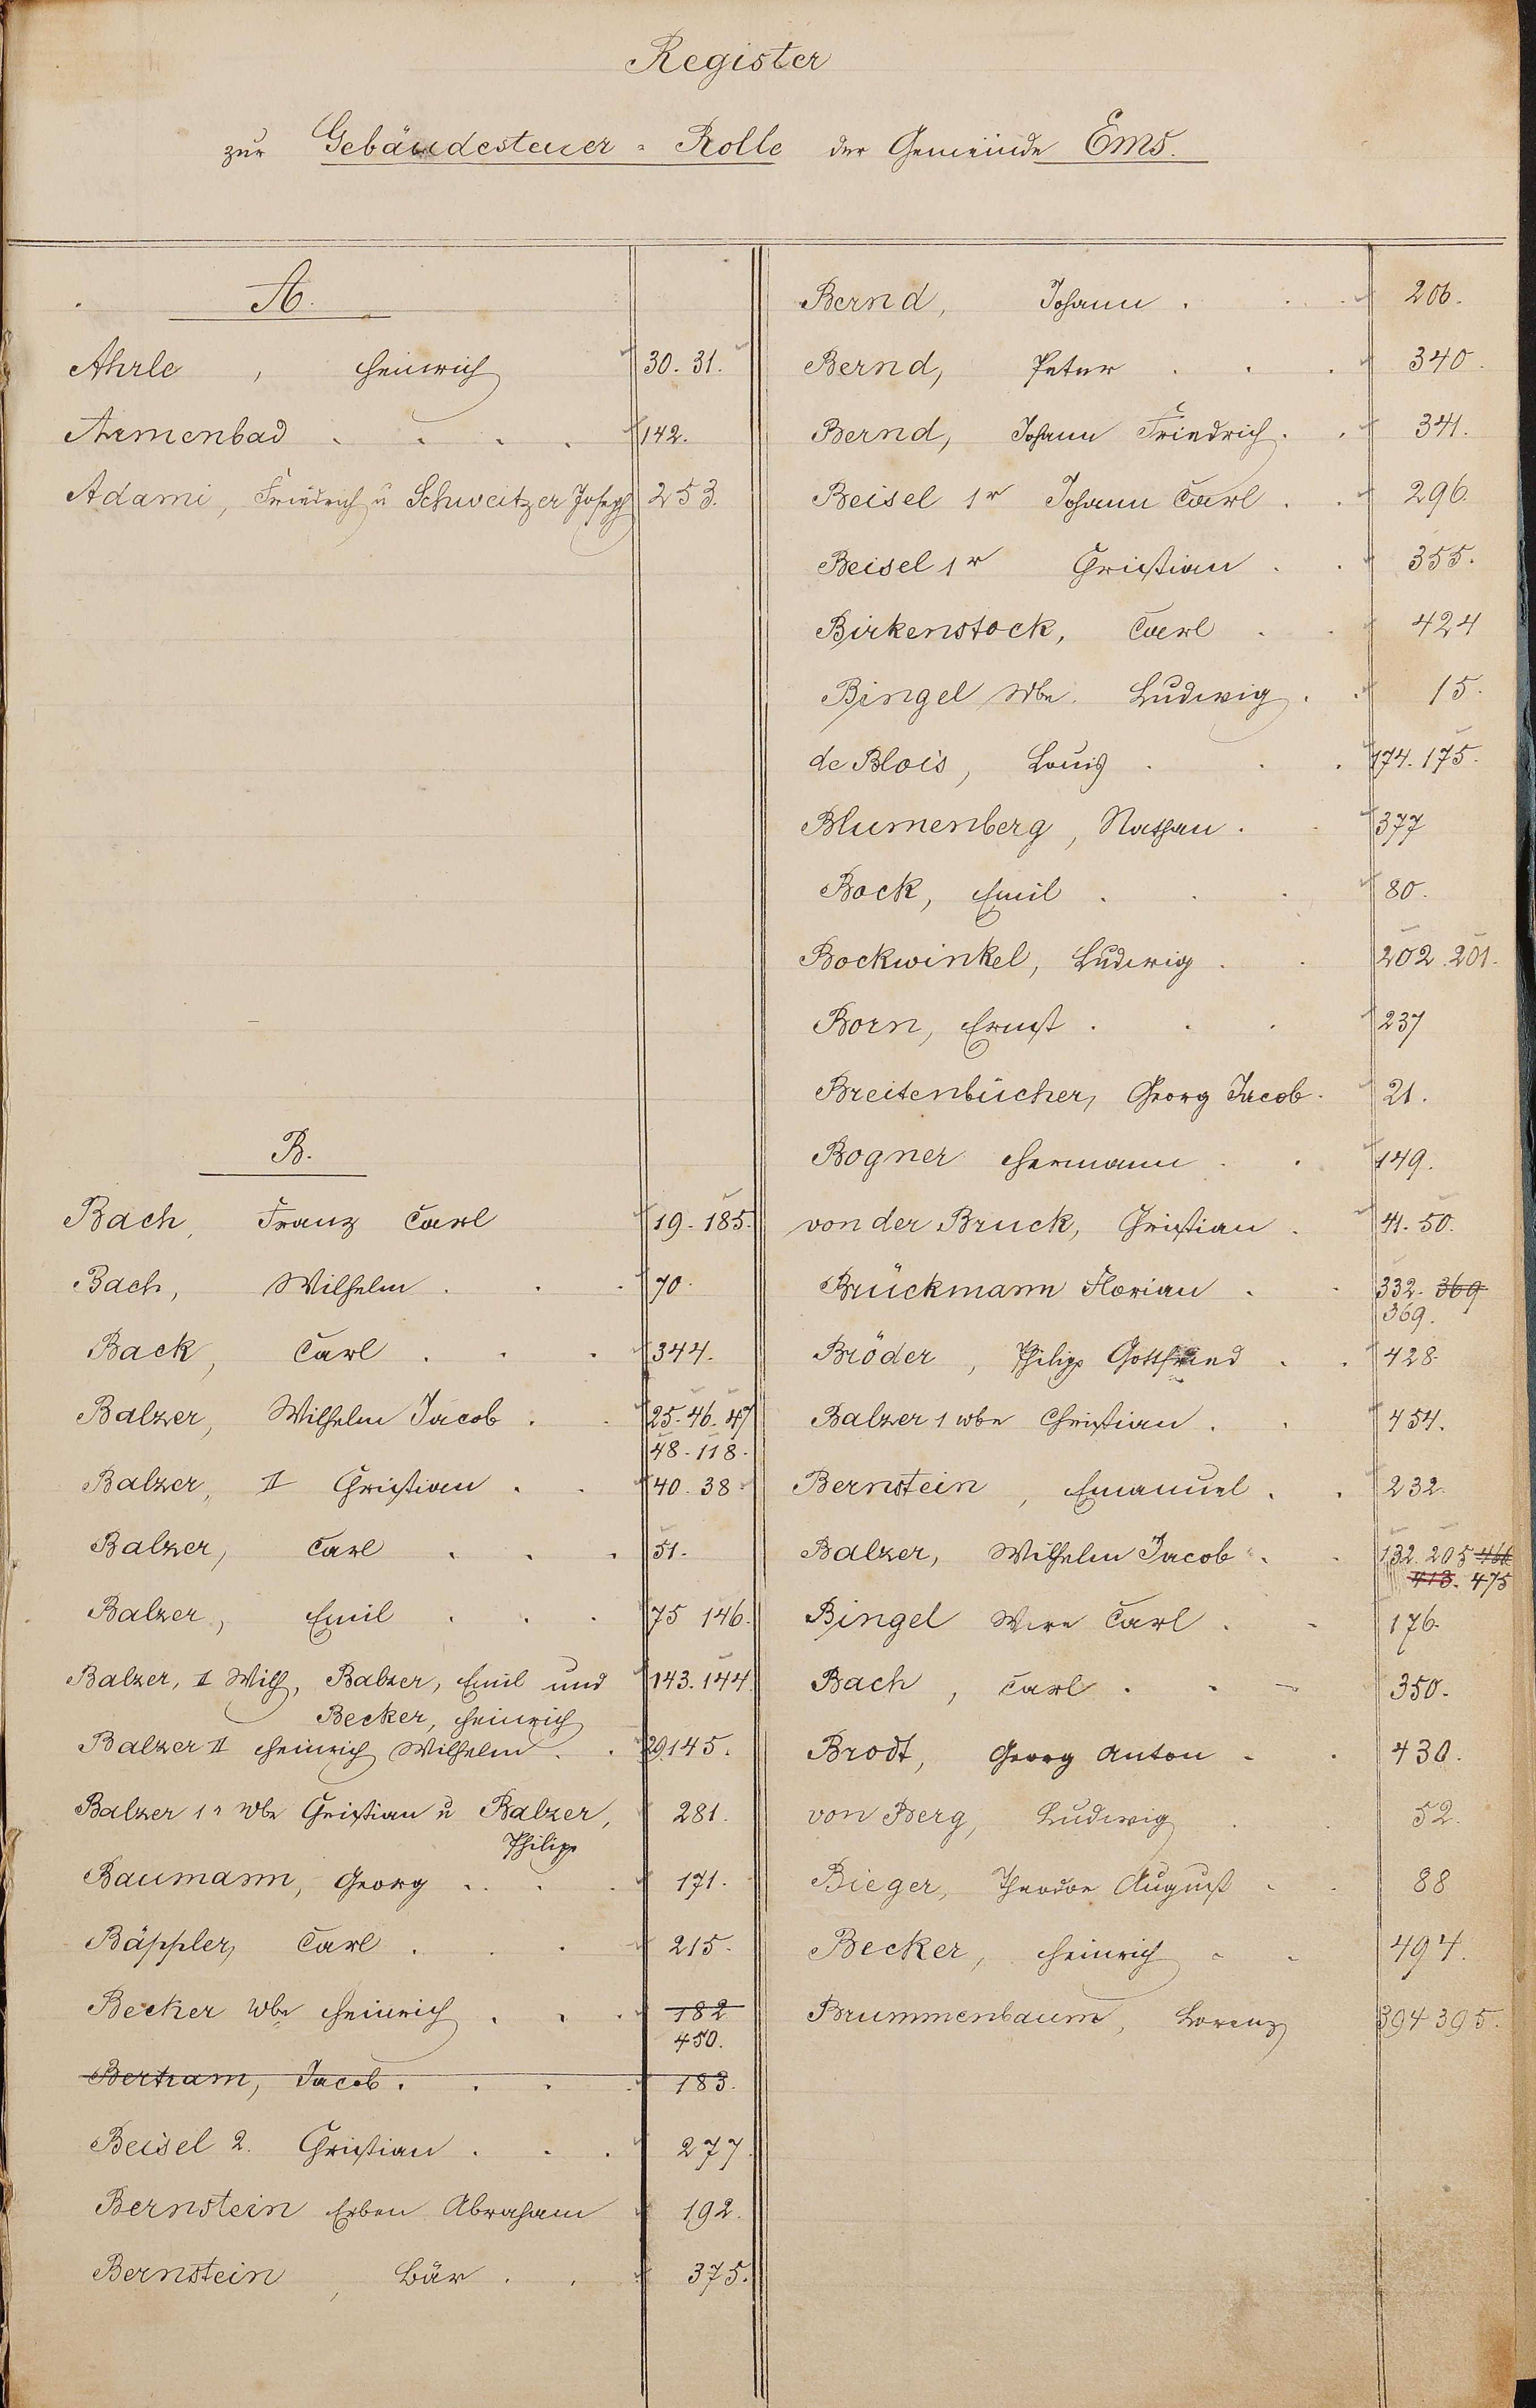 Register
zur Gebäudesteuer-Rolle der Gemeinde Ems.
A.
Ahrle, Heinrich 30. 31.
Armenbad . . . . 142.
Adami, Friedrich u Schweitzer Joseph 253.
B.
Bach, Franz Carl 19. 185.
Bach, Wilhelm . . . 70.
Back, Carl . . . 344.
Balzer, Wilhelm Jacob . . 25. 46. 47
48. 118.
Balzer, II Christian . . 40. 38.
Balzer, Carl . . . 51.
Balzer, Emil . . . 75 146.
Balzer, II Wilh, Balzer, Emil und 143. 144.
Becker, Heinrich
Balzer II Heinrich Wilhelm . . 29. 145.
Balzer 1r Wbe Christian u Balzer, 281.
Philipp
Baumann, Georg . . . 171.
Bäppler, Carl . . . 215.
Becker Wbe Heinrich . . . 182
450.
Bertram, Jacob . . . . 183.
Beisel 2. Christian . . . 277.
Bernstein Erben Abraham 192.
Bernstein, Bär . . 375.
Bernd, Johann . . . 206.
Bernd, Peter . . . 340.
Bernd, Johann Friedrich . . 341.
Beisel 1r Johann Carl . . 296.
Beisel 1r Christian . . 355.
Birkenstock, Carl . . 424
Bingel Wbe. Ludwig . . 15.
de Blois, Louis . . . 174. 175.
Blumenberg, Nathan . . 377
Bock, Emil . . . 80.
Bockwinkel, Ludwig . . 202. 201.
Born, Ernst . . . 237
Breitenbücher, Georg Jacob . 21.
Bogner Hermann . . 149.
von der Bruck, Christian . 41. 50.
Brückmann Florian . . 332. 369
369.
Bröder, Philipp Gottfried . . 428.
Balzer 1 Wbe Christian . . 454.
Bernstein, Emanuel . . 232.
Balzer, Wilhelm Jacob . . 132. 205
413. 475
Bingel Wwe Carl . . 176.
Bach, Carl . . . 350.
Brodt, Georg Anton . . 430.
von Berg, Ludwig . . 52.
Bieger, Theodor August . . 88
Becker, Heinrich . . 494.
Brummenbaum, Lorenz 394 395.